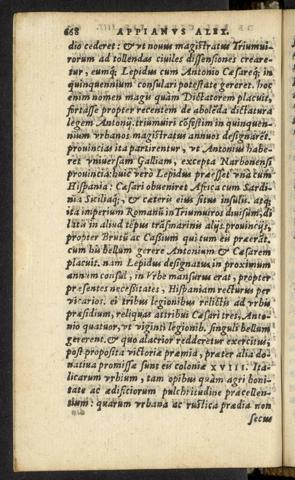 668 APPIANVS ALEX.
dio cederet: & vt nouus magistratus Triumui-
rorum ad tollendas ciuiles dissensiones creare-
tur, eumq́; Lepidus cum Antonio Cæsareq́; in
quinquennium consulari potestate gereret. hoc
enim nomen magis quàm Dictatorem placuit,
fortasse propter recentem de abolẽda dictatura
legem Antonij. triumuiri cõfestim in quinquen-
nium vrbanos magistratus annuos designarẽt.
prouincias ita partirentur, vt Antonius habe-
ret vniuersam Galliam, excepta Narbonensi
prouincia: huic verò Lepidus præesset vnà cum
Hispania: Cæsari obueniret Africa cum Sardi-
nia Siciliaq́;, & cæteris eius situs insulis. atq;
ita imperium Romanũ in Triumuiros diuisum, di
latũ in aliud tẽpus trãsmarinis alijs prouincijs,
propter Brutũ ac Cassium qui tum eu præerãt.
cum his bellum gerere Antonium & Cæsarem
placuit. nam Lepidus designatus in proximum
annum consul, in Vrbe mansurus erat, propter
præsentes necessitates, Hispaniam recturus per
vicarios. ei tribus legionibus relictis ad vrbis
præsidium, reliquas attribui Cæsari tres, Anto-
nio quatuor, vt viginti legionib. singuli bellum
gererent. & quo alacrior redderetur exercitus,
post proposita victoriæ præmia, præter alia do-
natiua promissæ sunt eis coloniæ XVIII. Ita-
licarum vrbium, tam opibus quàm agri boni-
tate ac ædificiorum pulchritudine præcellen-
tium: quarum vrbana ac rustica prædia non
secus